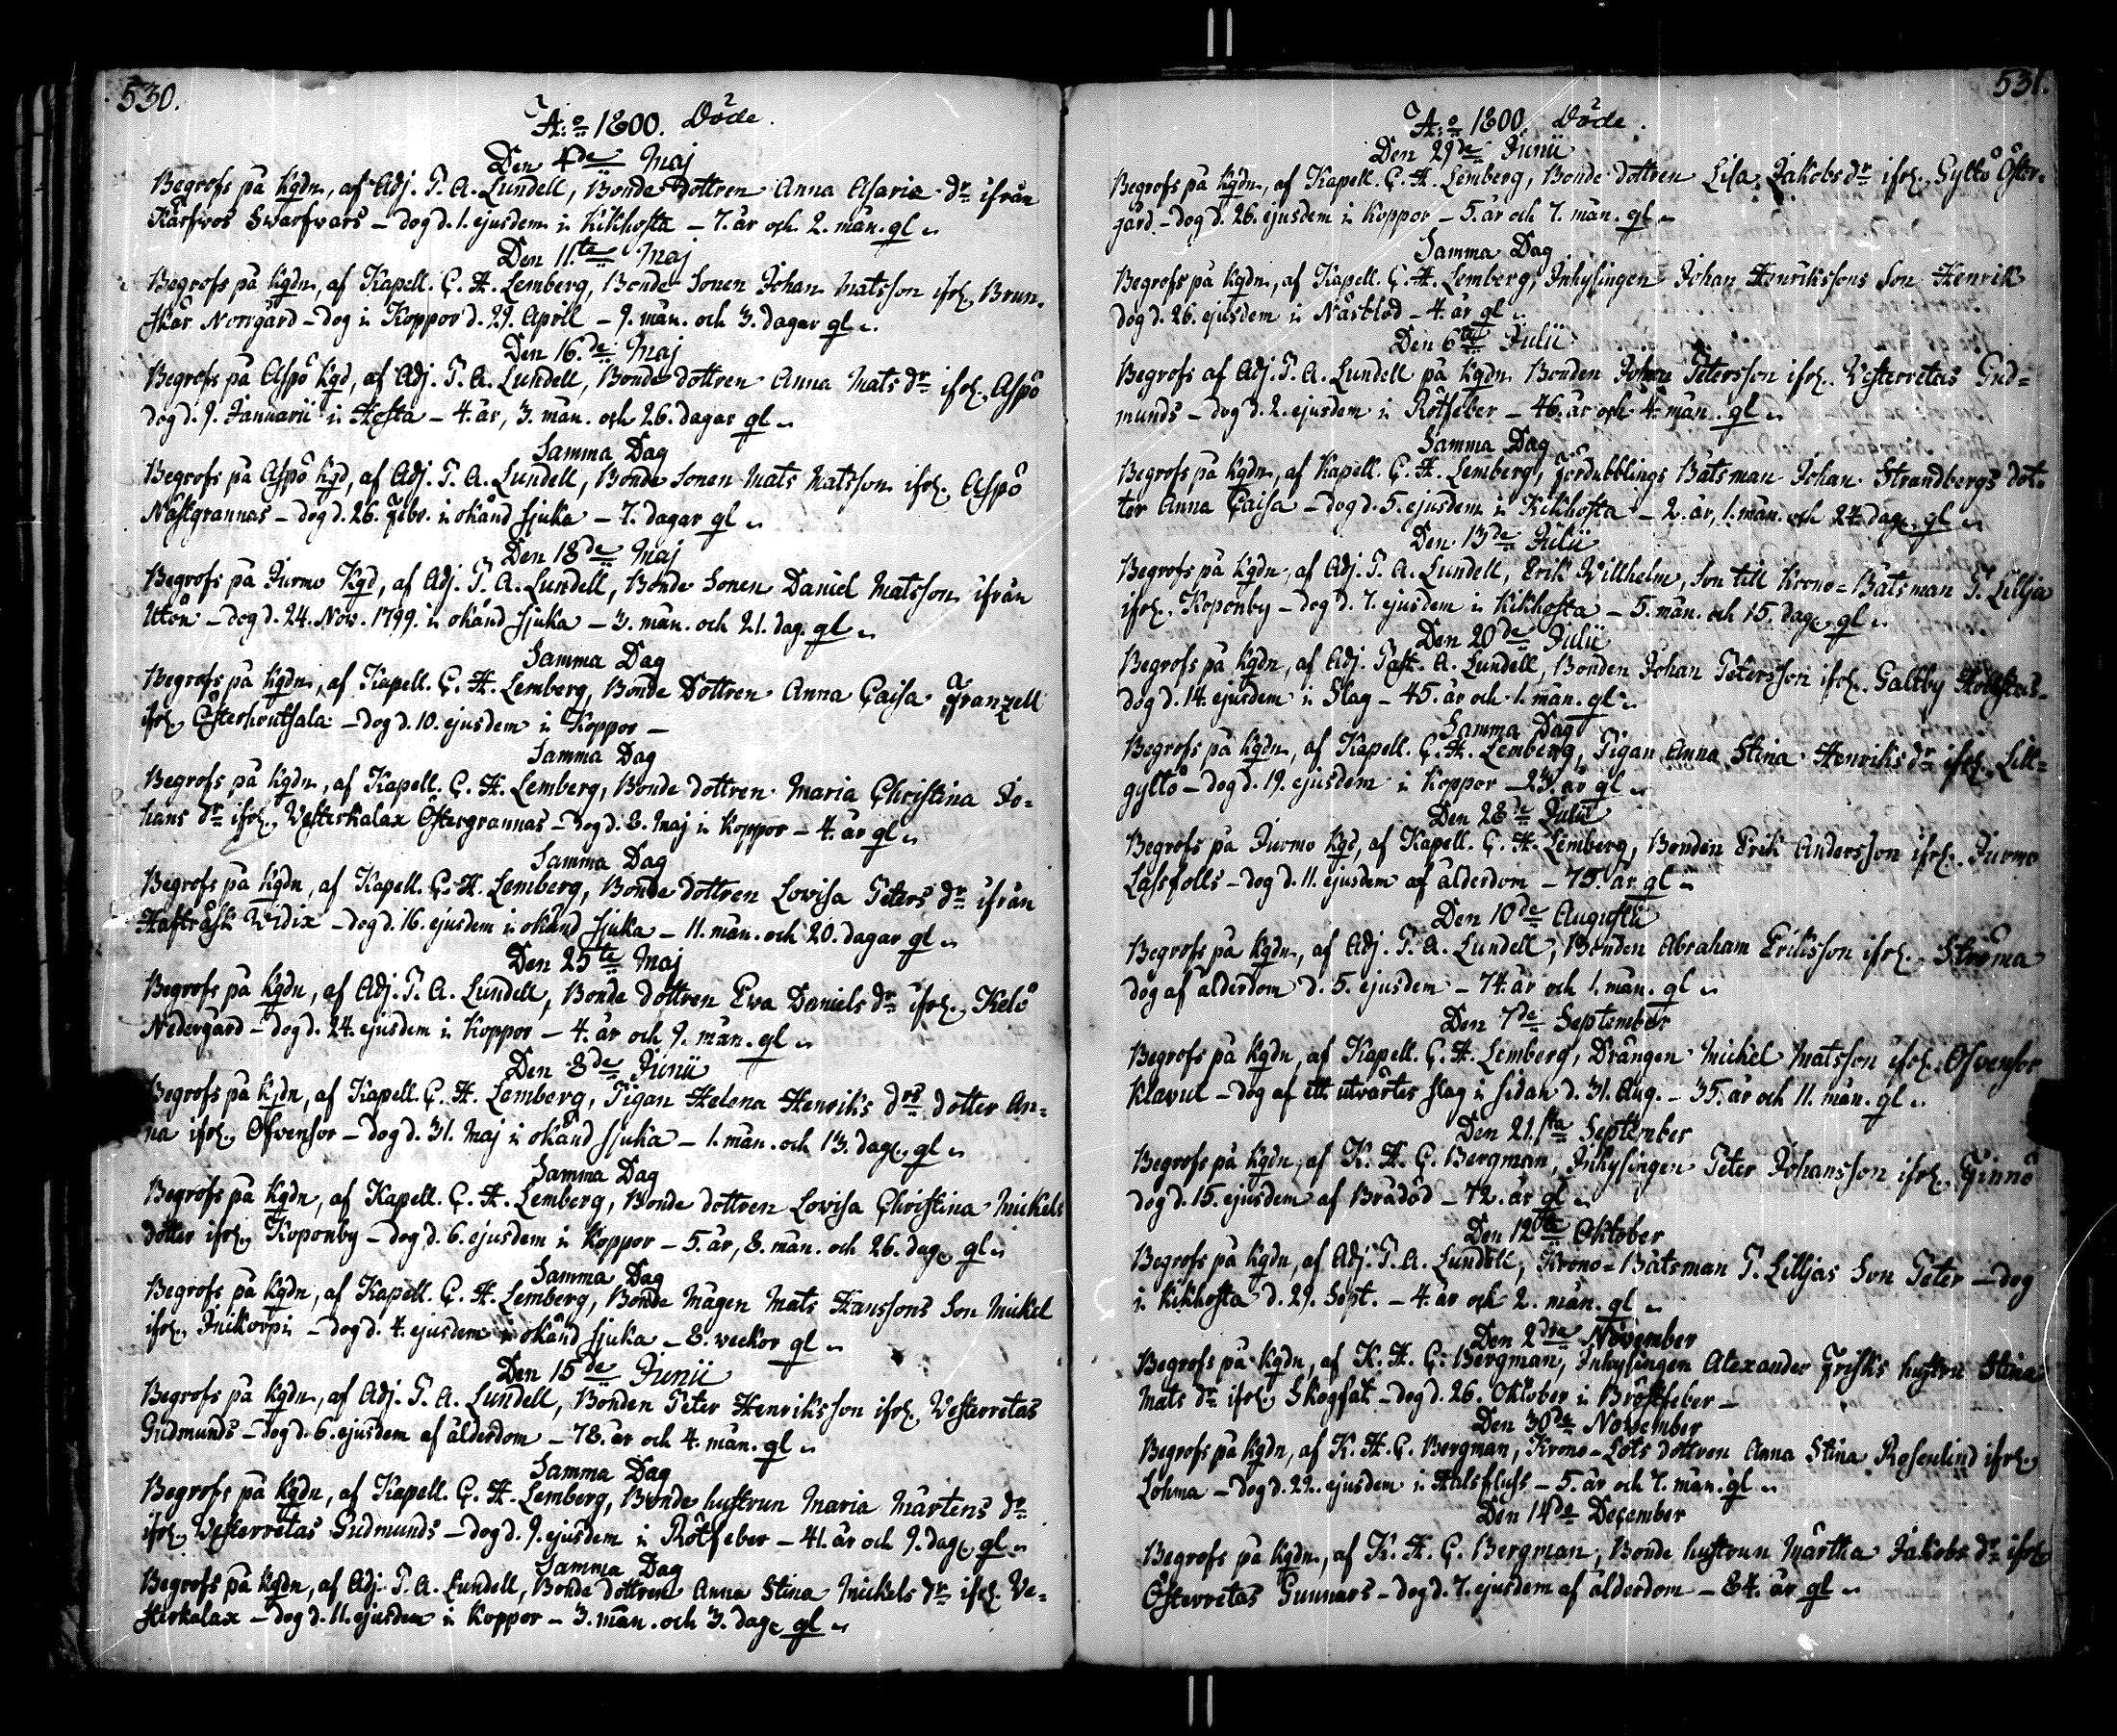 530.
A:o 1800. Döde.
Den 4de Maj
Begrofs på kgdn, af Adj. P. A. Lundell, Bonde dottren Anna Asaria dr ifrån
Kårfwos Swarfwars – dog d. 1. ejusdem i Kikhosta – 7. år och 2. mån. gl
Den 11.te Maj
Begrofs på kgdn, af Kapell. C. H. Lemberg, Bonde Sonen Johan Matsson ifr. Brun-
skär Norrgård – dog i Koppor d. 29. April – 9. mån. och 3. dagar gl
Den 16.de Maj
Begrofs på Aspö kgd, af Adj. P. A. Lundell, Bonde dottren Anna Mats dr ifr. Aspö
dog d. 9. Januarii i Hosta – 4. år, 3. mån. och 26. dagar gl
Samma Dag
Begrofs på Aspö kgd, af Adj. P. A. Lundell, Bonde Sonen Mats Matsson ifr. Aspö
Nästgrannas – dog d. 26. Febr. i okänd sjuka – 7. dagar gl
Den 18de Maj
Begrofs på Jurmo Kgd, af Adj. P. A. Lundell, Bonde Sonen Daniel Matsson ifrån
Utön – dog d. 24. Nov. 1799. i okänd sjuka – 3. mån. och 21. dag. gl
Samma Dag
Begrofs på kgdn, af Kapell. C. H. Lemberg, Bonde Dottren Anna Caisa Franzell
ifr. Österhoutsala – dog d. 10. ejusdem i Koppor –
Samma Dag
Begrofs på kgdn, af Kapell. C. H. Lemberg, Bonde dottren Maria Christina Jo-
hans dr ifr. Westerkalax Östergrannas – dog d. 8. Maj i koppor – 4. år gl
Samma Dag
Begrofs på kgdn, af Kapell. C. H. Lemberg, Bonde dottren Lovisa Peters dr ifrån
Hafträsk Widix – dog d. 16. ejusdem i okänd sjuka – 11. mån. och 20. dagar gl
Den 25te Maj
Begrofs på kgdn, af Adj. P. A. Lundell, Bonde dottren Ewa Daniels dr ifr. Kelö
Nedergård – dog d. 24. ejusdem i Koppor – 4. år och 9. mån. gl
Den 8de Junii
Begrofs på kgdn, af Kapell. C. H. Lemberg, Pigan Helena Henriks drs dotter An-
na ifr. Ofvensor – dog d. 31. Maj i okänd sjuka – 1. mån. och 13. dag. gl
Samma Dag
Begrofs på kgdn, af Kapell. C. H. Lemberg, Bonde dottren Lovisa Christina Mickels
dotter ifr. Koponby – dog d. 6. ejusdem i Koppor – 5. år, 8. mån. och 26. dag. gl
Samma Dag
Begrofs på kgdn, af Kapell. C. H. Lemberg, Bonde Mågen Mats Hanssons Son Mickel
ifr. Inikorpi – dog d. 4. ejusdem i okänd sjuka – 8. weckor gl
Den 15de Junii
Begrofs på kgdn, af Adj. P. A. Lundell, Bonden Peter Henriksson ifr. Westerretas
Gudmunds – dog d. 6. ejusdem af ålderdom – 78. år och 4. mån. gl
Samma Dag
Begrofs på kgdn, af Kapell. C. H. Lemberg, Bonde hustrun Maria Mårtens dr
ifr. Westerretas Gudmunds – dog d. 9. ejusdem i Rötfeber – 41. år och 9. dag. gl
Samma Dag
Begrofs på kgdn, af Adj. P. A. Lundell, Bonde dottren Anna Stina Mickels dr ifr. We-
sterkalax – dog d. 11. ejusdem i Koppor – 3. mån. och 3. dag. gl
531.
A:o 1800. Döde.
Den 29de Junii
Begrofs på kgdn, af Kapell. C. H. Lemberg, Bonde dottren Lisa Jakobs dr ifr. Gyltö Öster-
gård – dog d. 26. ejusdem i koppor – 5. år och 7. mån. gl
Samma Dag
Begrofs på kgdn, af Kapell. C. H. Lemberg, Inhysingen Johan Henrikssons Son Henrik
dog d. 26. ejusdem i Näsblod – 4. år gl
Den 6te Julii
Begrofs af Adj. P. A. Lundell på kgdn Bonden Johan Petersson ifr. Westerretas Gud-
munds – dog d. 2. ejusdem i Rötfeber – 46. år och 4. mån. gl
Samma Dag
Begrofs på kgdn, af Kapell. C. H. Lemberg, Fördubblings Båtsman Johan Strandbergs dot-
ter Anna Caisa – dog d. 5. ejusdem i Kikhosta – 2. år, 1. mån. och 24. dag. gl
Den 13de Julii
Begrofs på kgdn, af Adj. P. A. Lundell, Erik Willhelm, Son till Krono-Båtsman P. Lillja
ifr. Koponby – dog d. 7. ejusdem i Kikhosta – 5. mån. och 15. dag. gl
Den 20de Julii
Begrofs på kgdn, af Adj. Past. A. Lundell, Bonden Johan Petersson ifr. Galtby
dog d. 14. ejusdem i Slag – 45. år och 1. mån. gl
Samma Dag
Begrofs på kgdn, af Kapell. C. H. Lemberg, Pigan Anna Stina Henriks dr ifr. Lill-
gyltö – dog d. 19. ejusdem i koppor – 23. år gl
Den 28de Julii
Begrofs på Jurmo kgd, af Kapell. C. H. Lemberg, Bonden Erik Andersson ifr. Jurmo
Lassfolls – dog d. 11. ejusdem af ålderdom – 75. år gl
Den 10de Augusti
Begrofs på kgdn, af Adj. P. A. Lundell, Bonden Abraham Eriksson ifr. Ströma
dog af ålderdom d. 5. ejusdem – 74. år och 1. mån. gl
Den 7de September
Begrofs på kgdn, af Kapell. C. H. Lemberg, Drängen Mickel Matsson ifr. Ofvensor
Klavul – dog af ett utvärtes slag i sidan d. 31. Aug. – 35. år och 11. mån. gl
Den 21.sta September
Begrofs på kgdn, af K. H. C. Bergman, Inhysingen Peter Johansson ifr. Finnö
dog d. 15. ejusdem af Brådöd – 72. år gl
Den 12te Oktober
Begrofs på kgdn, af Adj. P. A. Lundell, Krono-Båtsman P. Lilljas Son Peter – dog
i kikhosta d. 29. Sept. – 4. år och 2. mån. gl
Den 2dra November
Begrofs på kgdn, af K. H. C. Bergman, Inhysingen Alexander Frisks hustru Stina
Mats dr ifr. Skogfat – dog d. 26. Oktober i Bröstfeber –
Den 30de November
Begrofs på kgdn, af K. H. C. Bergman, Krono-Lots dottren Anna Stina Rosenlind ifr.
Lohma – dog d. 22. ejusdem i Halsfluss – 5. år och 7. mån. gl
Den 14de December
Begrofs på kgdn, af K. H. C. Bergman, Bonde hustrun Märtha Jakobs dr ifr
Österretas Gunnars – dog d. 7. ejusdem af ålderdom – 84. år gl